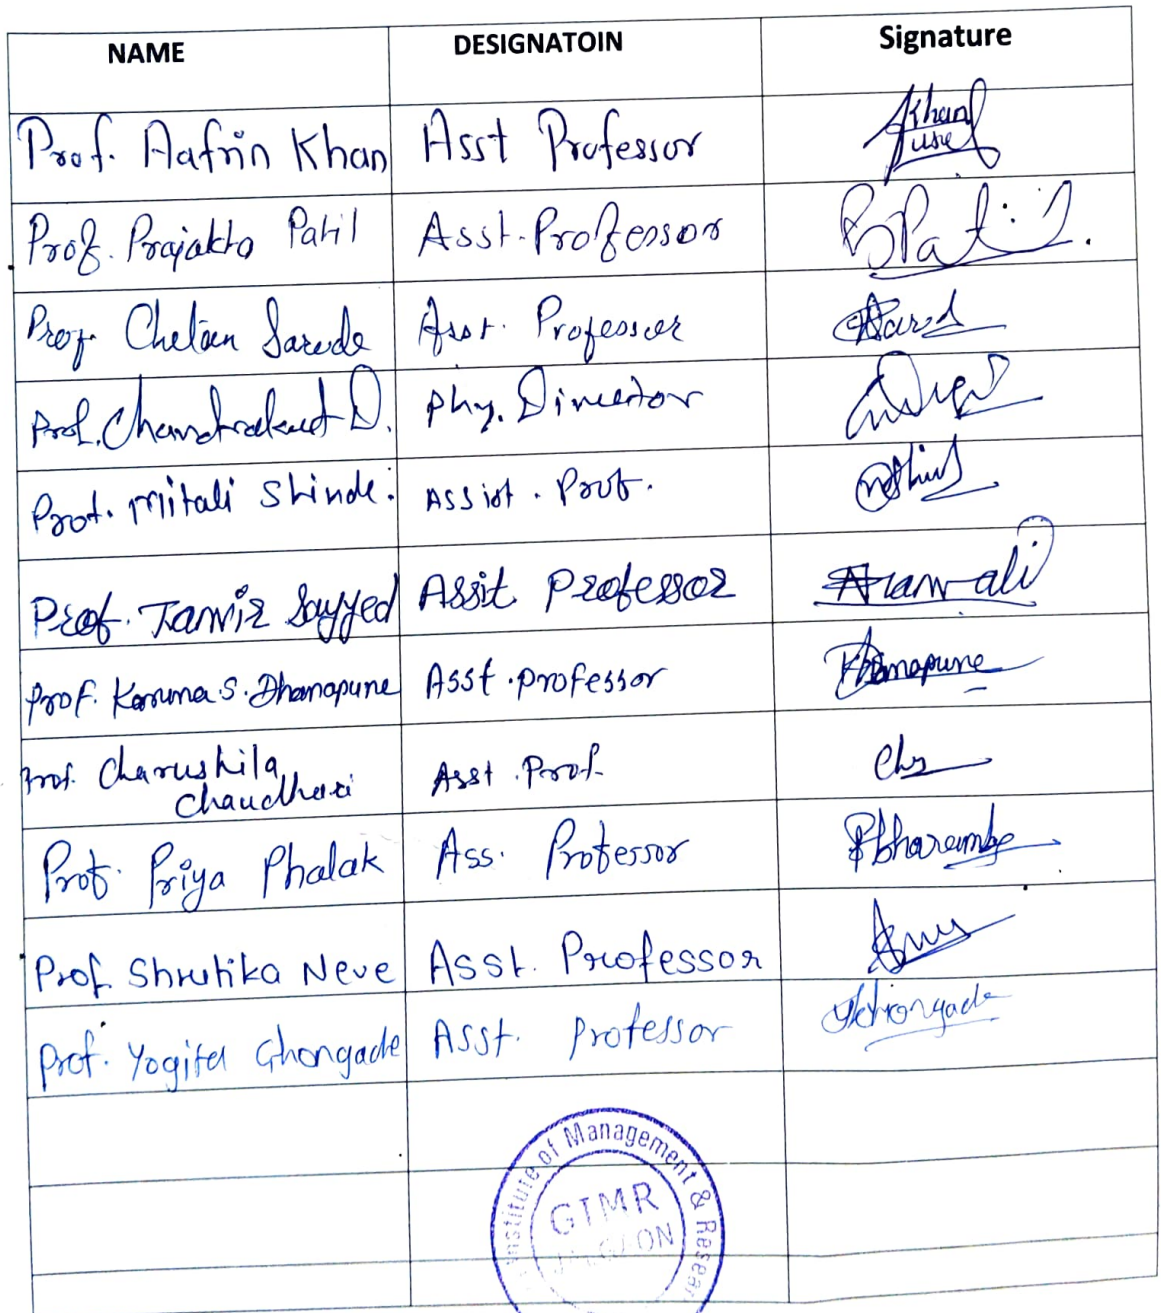 NAME DESIGNATOIN Signature
Prof. Aafrin Khan Asst Professor
Prof. Prajakta Patil Asst. Professor BPatil.
Prof. Chetan Sarode Asst. Professor
Prof. Chandrakant D. Phy. Director
Prof. Mitali Shinde. Assist. Prof.
Prof. Tanviz Sayyed Assit Professor
Prof. Karuna S. Dhanapune Asst. professor Dhanapune
Prof. Charushila Asst. Prof.
Chaudhari
Prof. Priya Phalak Ass. Professor PBharambe
Prof. Shrutika Neve Asst. Professor
Prof. Yogita Ghongade Asst. Professor Ghongade
Institute of Management & Resear
GIMR
JALGAON